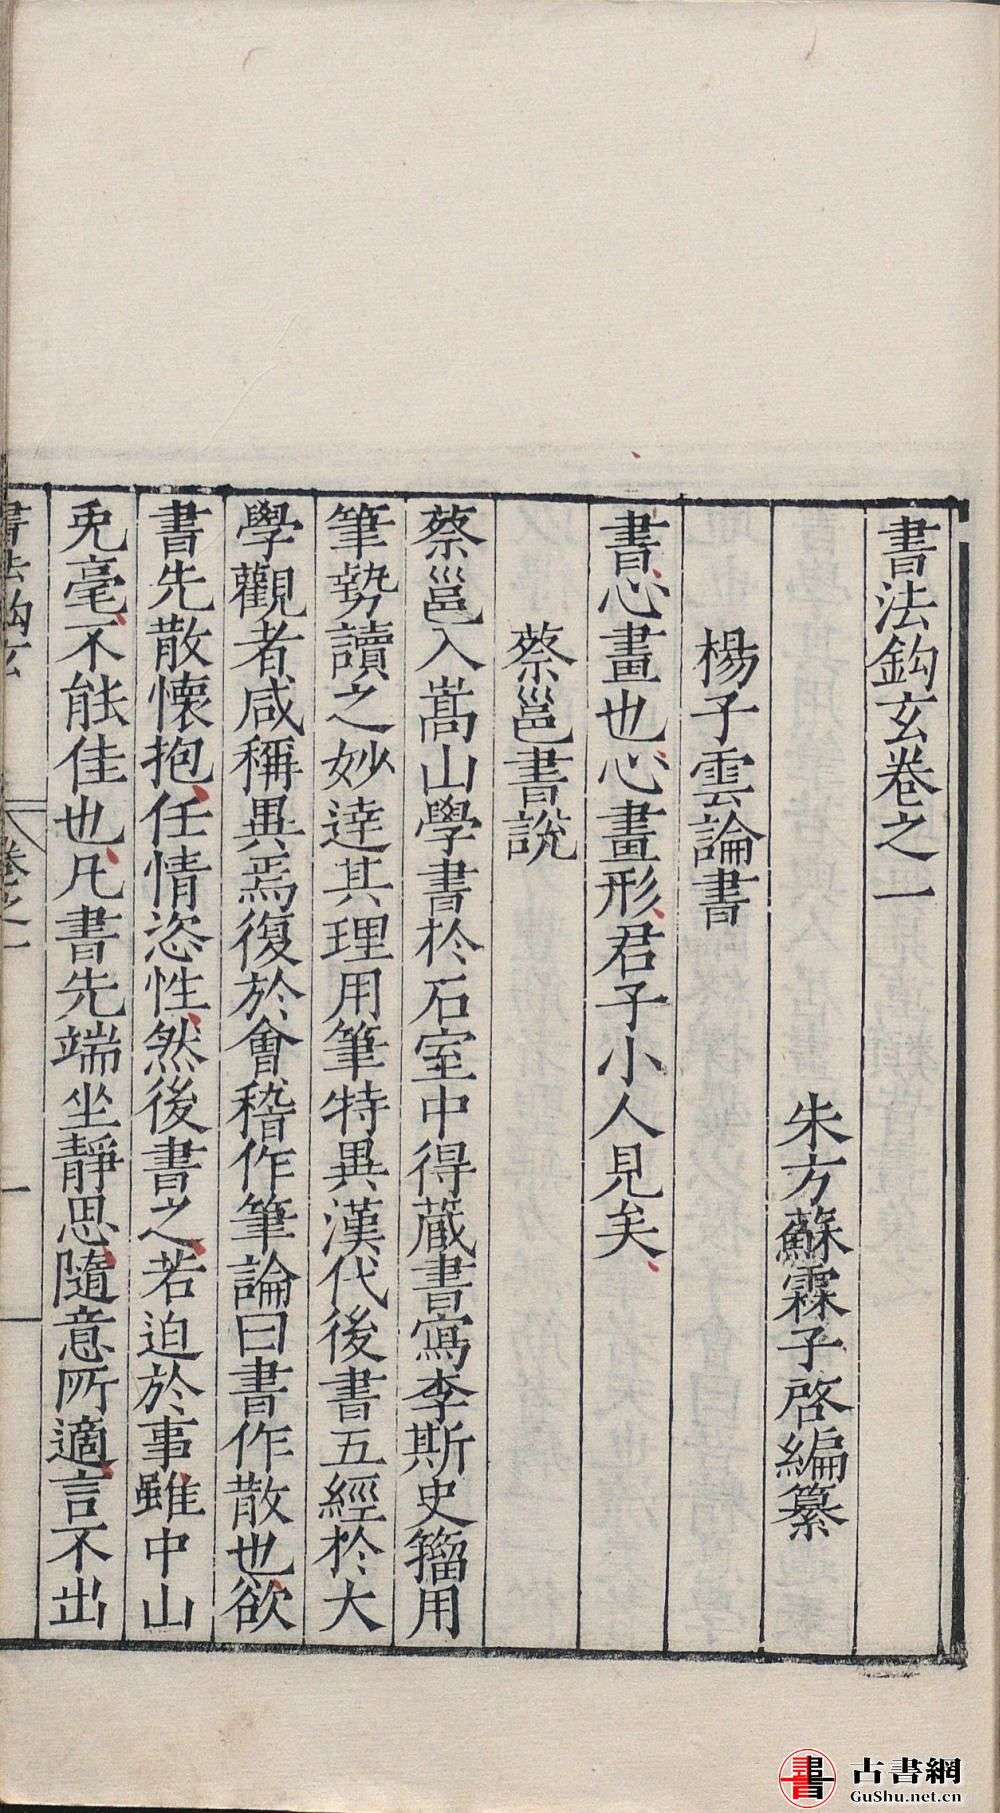 書法鈎玄卷之一
朱方蘇霖子啓編纂
楊子雲論書
書心畫也心畫形君子小人見矣
蔡邕書說
蔡邕入嵩山學書於石室中得蔵書寫李斯史籀用
筆勢讀之妙逹其理用筆特異漢代後書五經於大
學觀者咸稱異焉復於會稽作筆論曰書作散也欲
書先散懐抱任情恣性然後書之若迫於事雖中山
兎毫不能佳也凡書先端坐靜思隨意所適言不出
書法鈎玄 卷之一 一
古書網
GuShu.net.cn